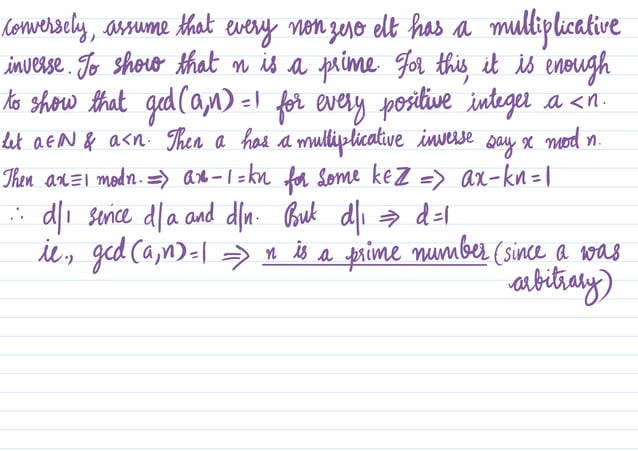 Conversely, assume that every non zero elt has a multiplicative
inverse. To show that n is a prime. For this, it is enough
to show that gcd(a,n)=1 for every positive integer a<n.
Let a∈ℕ & a<n. Then a has a multiplicative inverse say x mod n.
Then ax≡1 modn. ⇒ ax-1=kn for some k∈ℤ ⇒ ax-kn=1
∴ d|1 sence d|a and d|n. But d|1 ⇒ d=1
ie., gcd(a,n)=1 ⇒ n is a prime number (since a was
arbitrary)